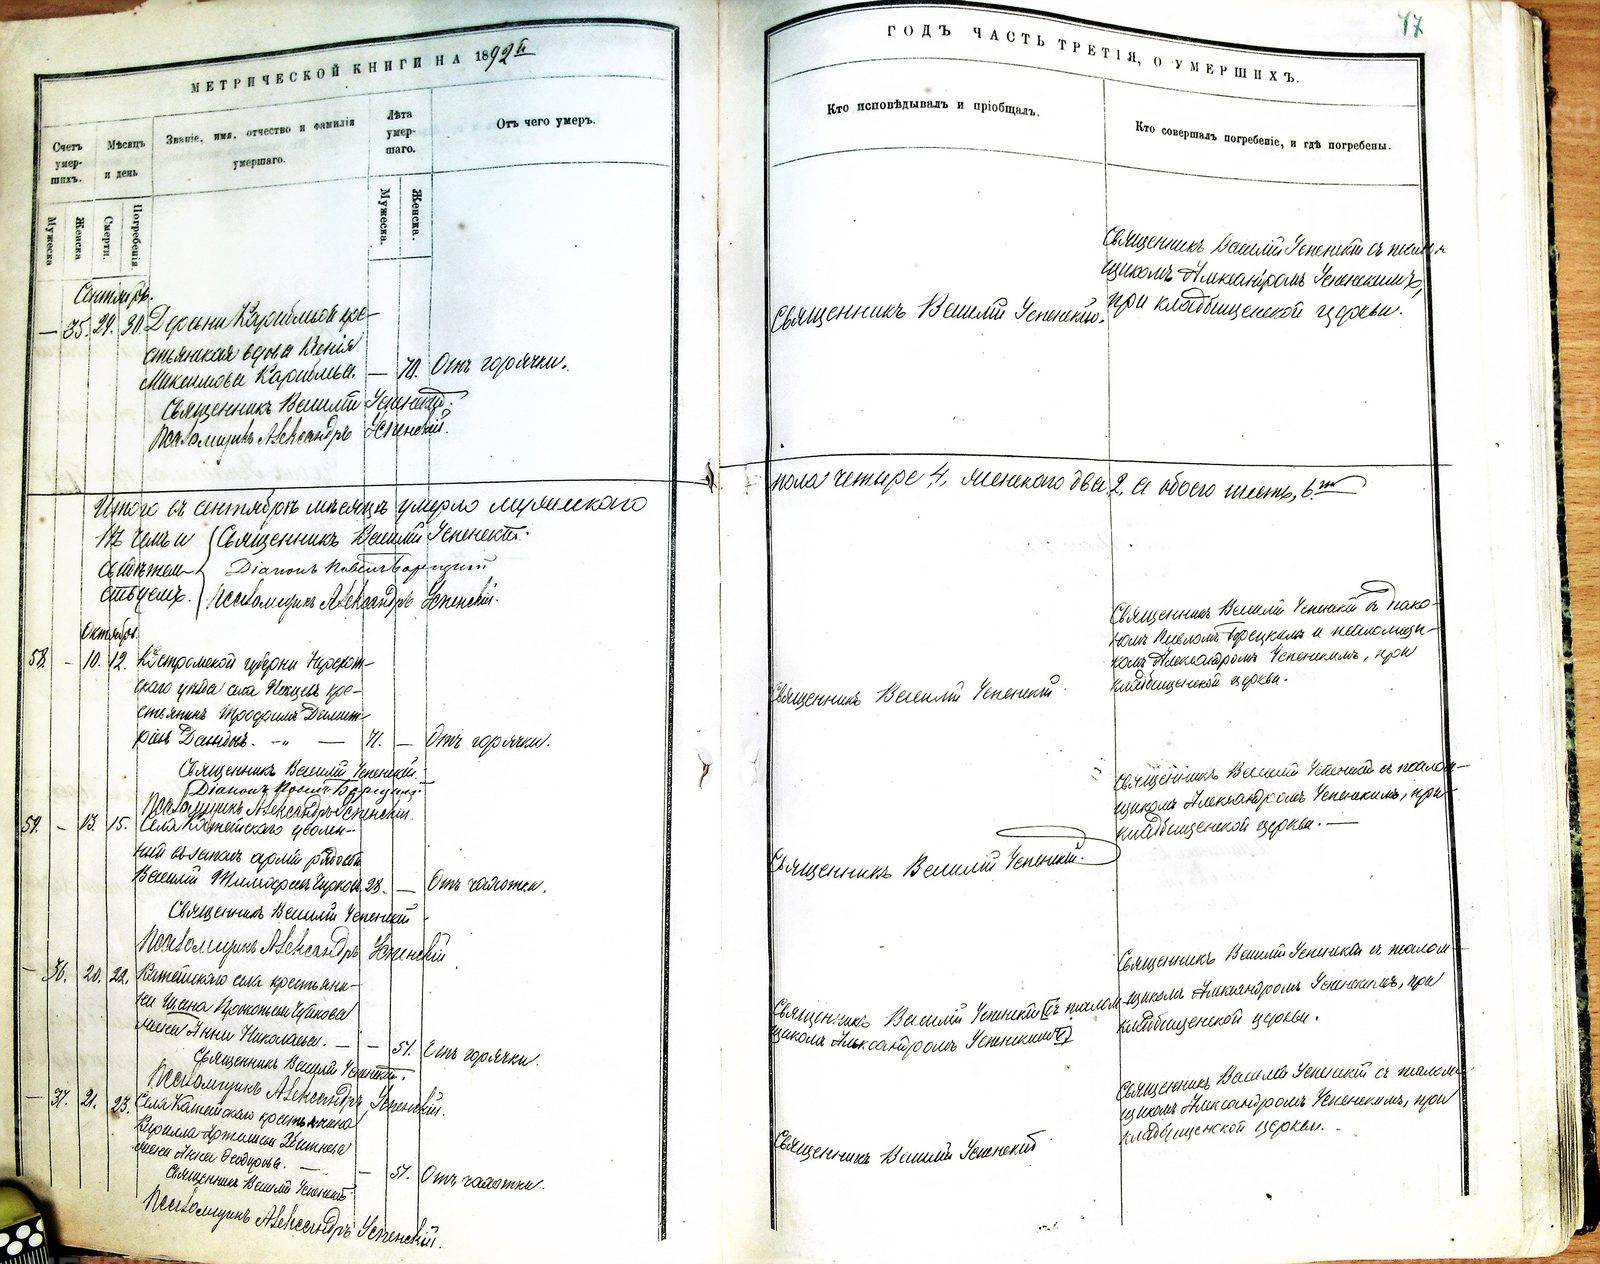 МЕТРИЧЕСКОЙ КНИГИ НА 1892й
Счетъ умер-шихъ.
Мѣсяцъ и день
Званіе, имя, отчество и фамилія умершаго.
Лѣта умер-шаго.
Отъ чего умеръ.
Мужеска
Женска
Смерти.
Погребенія.
Мужеска.
Женска.
Сентябрь.
— 35. 29. 30. Деревни
стьянская вдова Ксенія
Максимова — 70. Отъ горячки.
Священникъ Василій Успенскій.
Псаломщикъ Александръ Успенскій.
Итого въ сентябрѣ мѣсяцѣ умерло мужескаго
Въ чемъ и Священникъ Василій Успенскій.
свидѣтель- Діаконъ Павелъ
ствуемъ. Псаломщикъ Александръ Успенскій.
Октябрь
58. — 10. 12. Костромской губерніи Нерехт-
скаго уѣзда села кре-
стьянинъ Трофимъ Димит-
ріевъ — „ — 71. — Отъ горячки.
Священникъ Василій Успенскій.
Діаконъ Павелъ
Псаломщикъ Александръ Успенскій.
59. — 13. 15. Села уволен-
ный въ запасъ арміи рядовой
Василій 28. — Отъ чахотки.
Священникъ Василій Успенскій
Псаломщикъ Александръ Успенскій
— 36. 20. 22. села крестьяни-
на
жена Анна Николаева. — — 51. Отъ горячки.
Священникъ Василій Успенскій.
Псаломщикъ Александръ Успенскій.
— 37. 21. 23. Села крестьянина
Кирилла
жена Анна Ѳеодорова. — — 51. Отъ чахотки.
Священникъ Василій Успенскій
Псаломщикъ Александръ Успенскій.
ГОДЪ ЧАСТЬ ТРЕТІЯ, О УМЕРШИХЪ.
Кто исповѣдывалъ и пріобщалъ.
Кто совершалъ погребеніе, и гдѣ погребены.
Священникъ Василій Успенскій съ псалом-
щикомъ Александромъ Успенскимъ,
при кладбищенской церкви.
Священникъ Василій Успенскій.
пола четыре 4, женскаго два 2, а обоего шесть, 6.
Священникъ Василій Успенскій съ діако-
номъ Павломъ и псаломщи-
комъ Александромъ Успенскимъ, при
кладбищенской церкви.
Священникъ Василій Успенскій.
Священникъ Василій Успенскій съ псалом-
щикомъ Александромъ Успенскимъ, при
кладбищенской церкви. —
Священникъ Василій Успенскій.
Священникъ Василій Успенскій съ псалом-
щикомъ Александромъ Успенскимъ, при
кладбищенской церкви.
Священникъ Василій Успенскій [съ псалом-
щикомъ Александромъ Успенскимъ]
Священникъ Василій Успенскій съ псалом-
щикомъ Александромъ Успенскимъ, при
кладбищенской церкви.
Священникъ Василій Успенскій